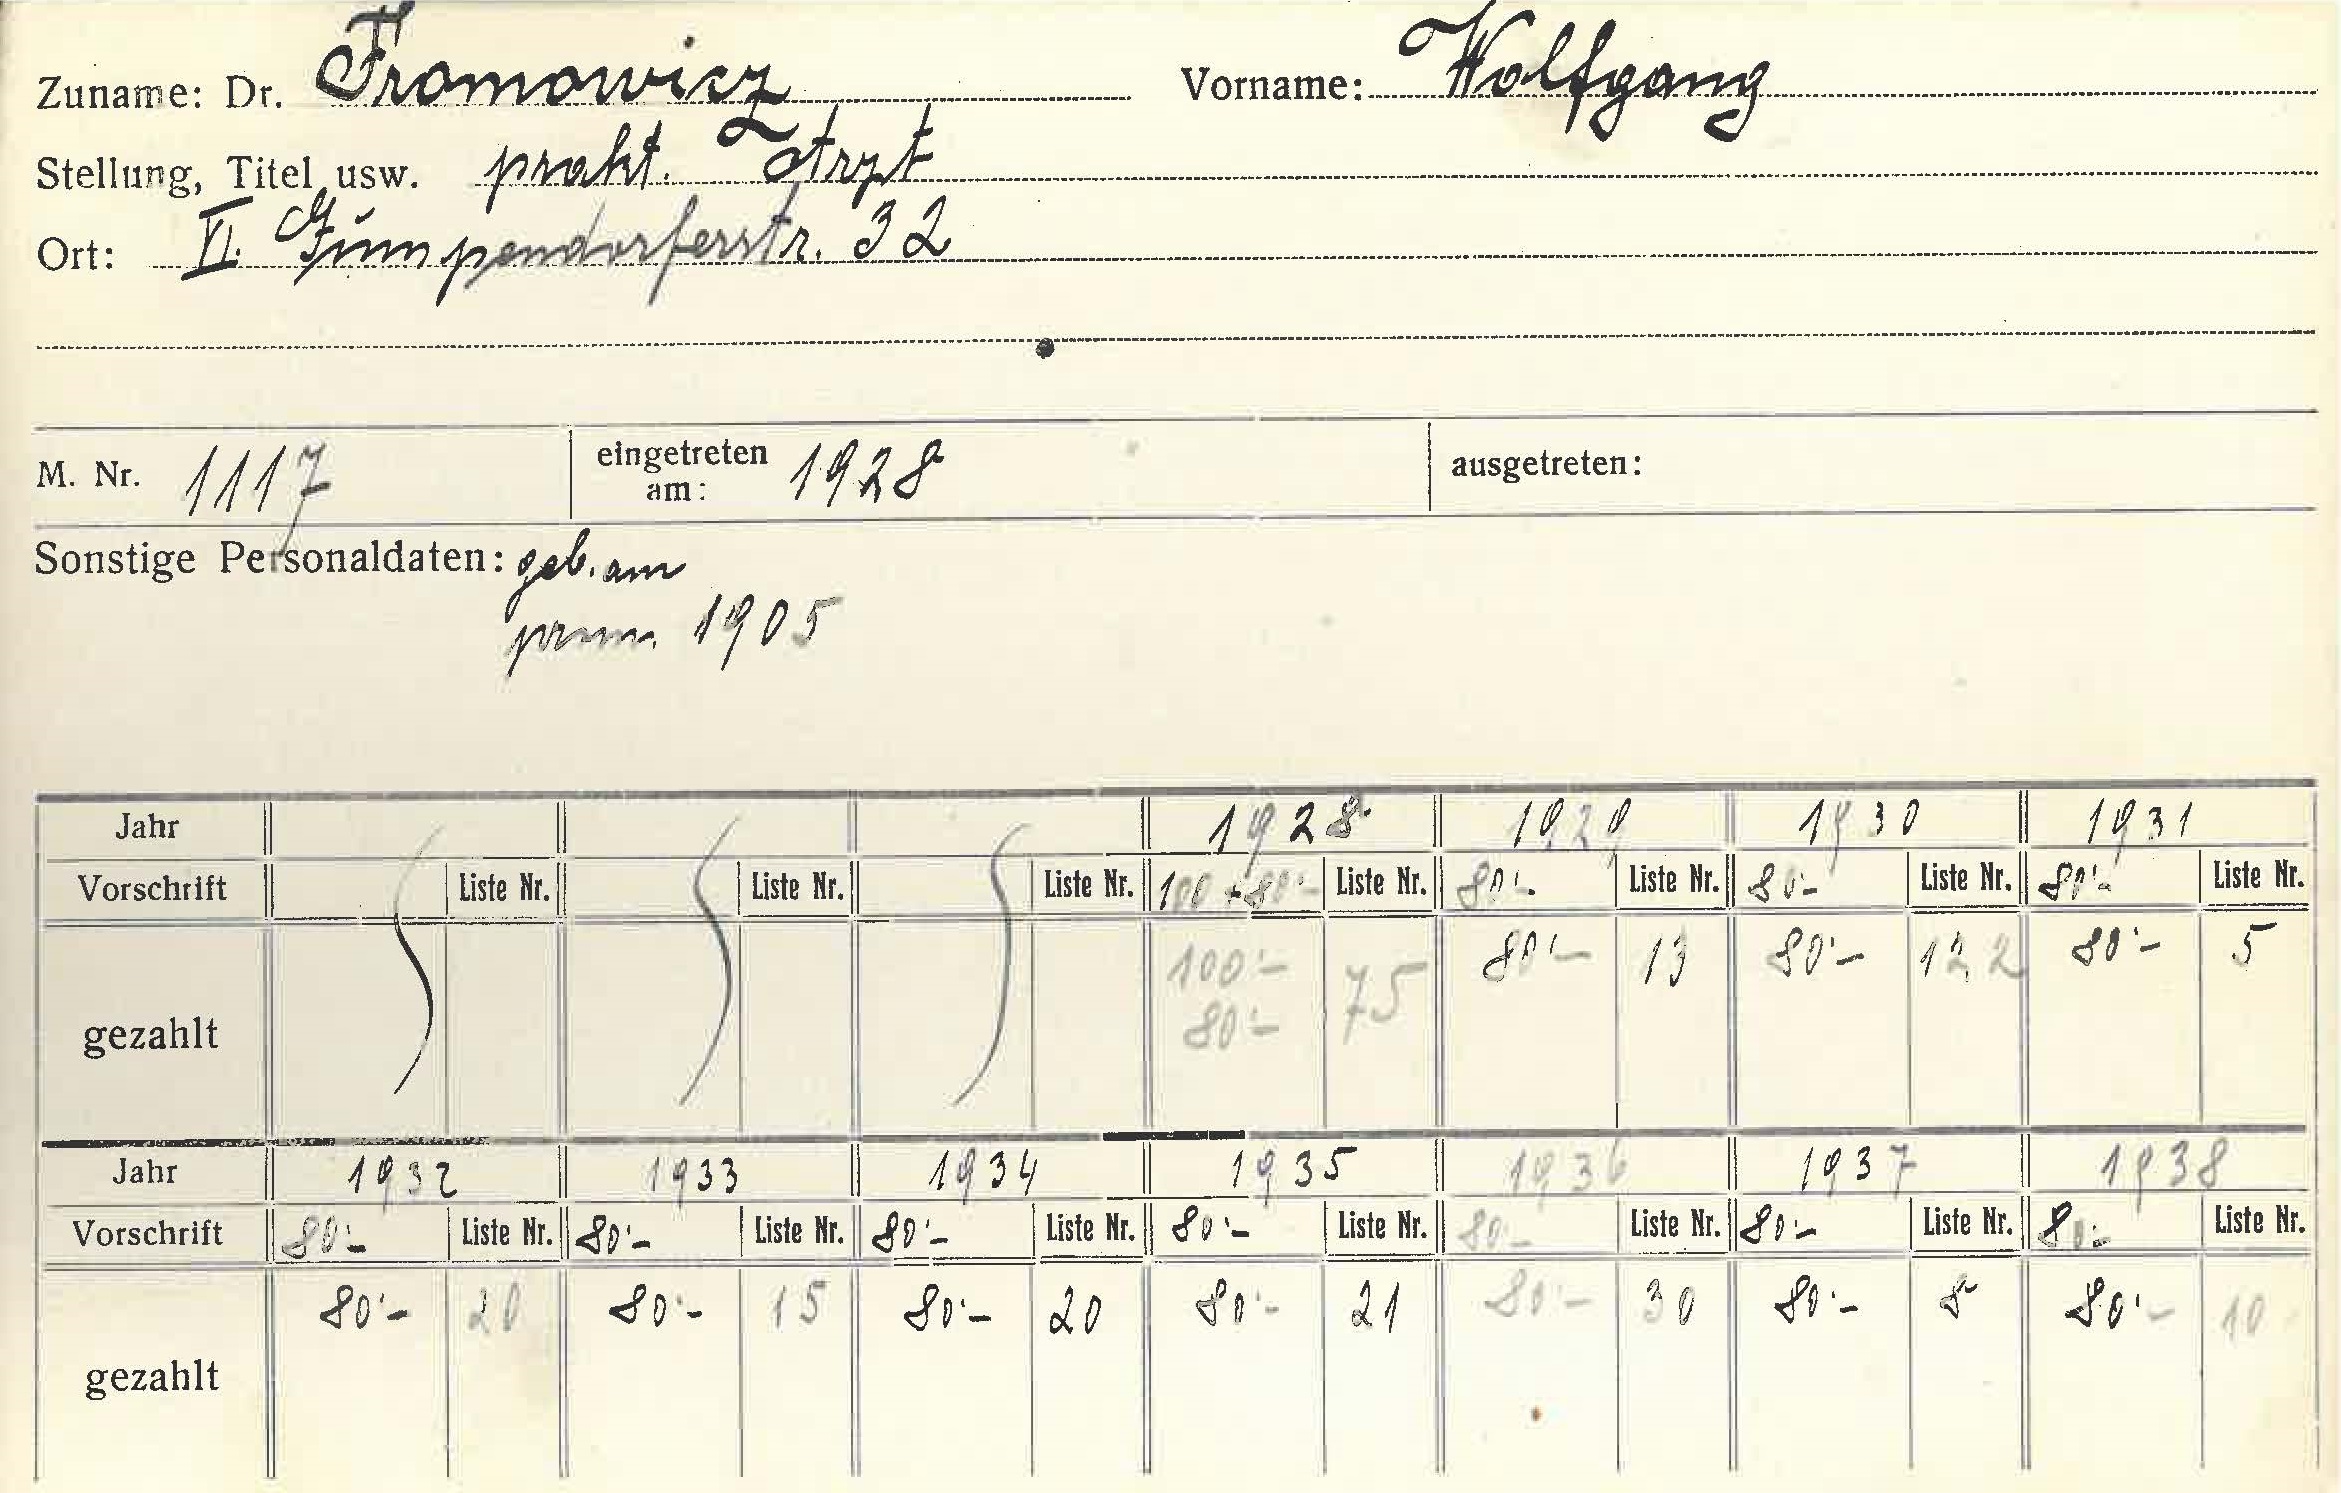 Zuname: Dr. Fromowicz Vorname: Wolfgang
Stellung, Titel usw. prakt. Arzt
Ort: VI. Gumpendorferstr. 32
M. Nr. 1117 eingetreten am: 1928 ausgetreten:
Sonstige Personaldaten: geb. am
prom. 1905
Jahr 1928 1929 1930 1931
Vorschrift Liste Nr. Liste Nr. Liste Nr. 100 + 80'- Liste Nr. 80'- Liste Nr. 80'- Liste Nr. 80'- Liste Nr.
gezahlt 100'- 80'- 75 80'- 13 80'- 122 80'- 5
Jahr 1932 1933 1934 1935 1936 1937 1938
Vorschrift 80'- Liste Nr. 80'- Liste Nr. 80'- Liste Nr. 80'- Liste Nr. 80'- Liste Nr. 80'- Liste Nr. 80'- Liste Nr.
gezahlt 80'- 20 80'- 15 80'- 20 80'- 21 80'- 30 80'- 8 80'- 10